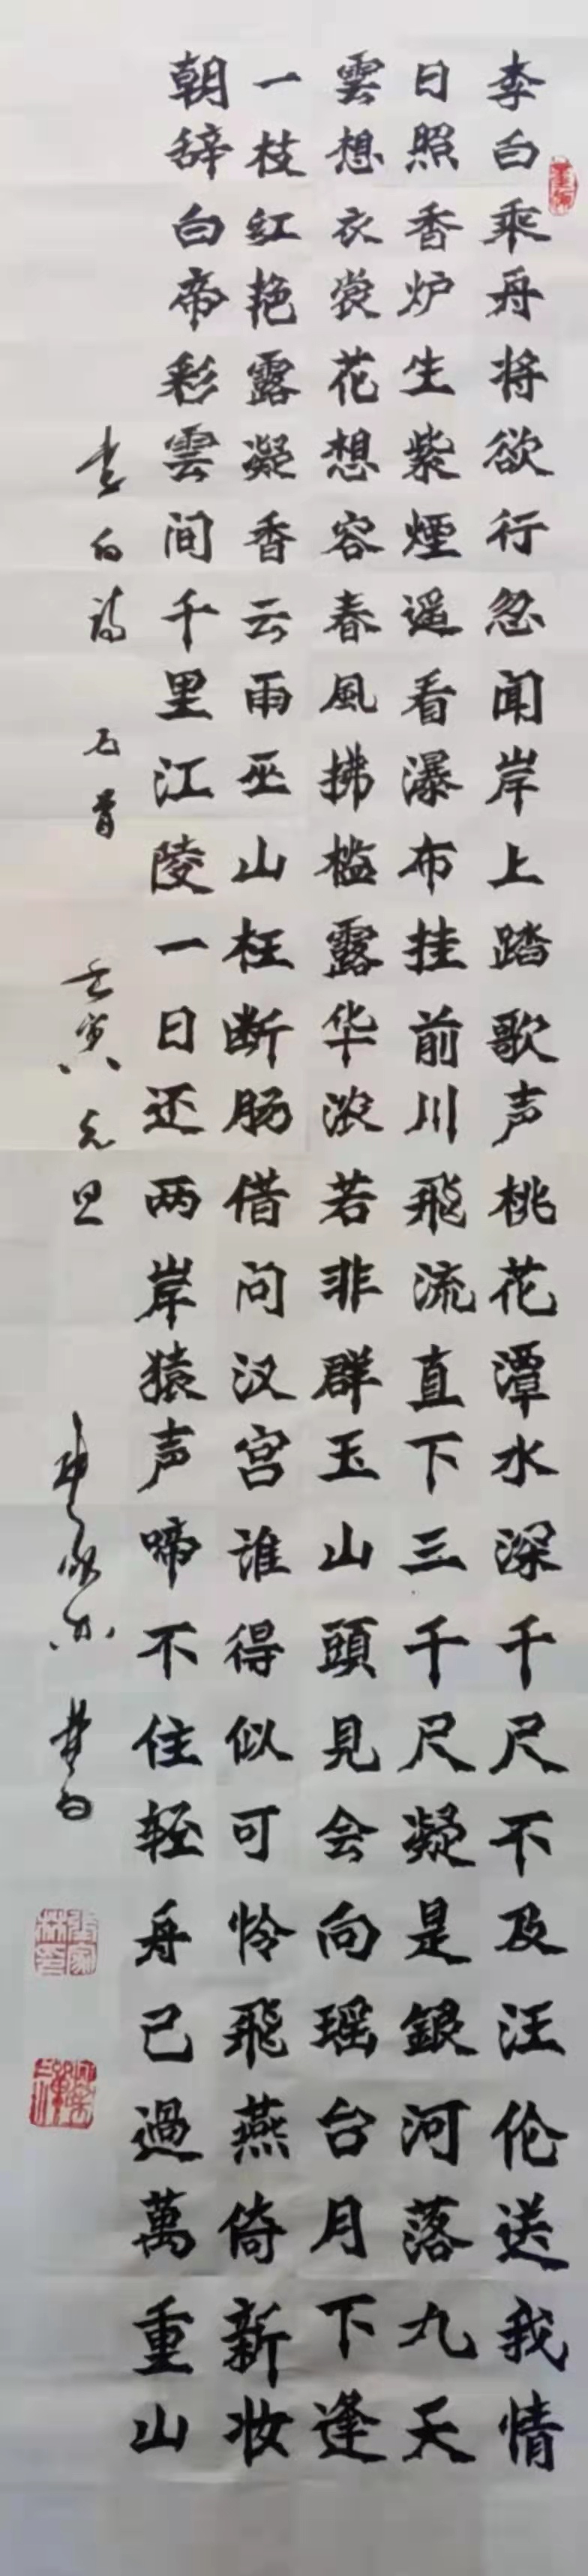 李白乘舟将欲行忽闻岸上踏歌声桃花潭水深千尺不及汪伦送我情
日照香炉生紫煙遥看瀑布挂前川飛流直下三千尺凝是銀河落九天
雲想衣裳花想容春風拂槛露华浓若非群玉山頭見会向瑶台月下逢
一枝红艳露凝香云雨巫山枉断肠借问汉宫谁得似可怜飛燕倚新妆
朝辞白帝彩雲间千里江陵一日还两岸猿声啼不住轻舟已過萬重山
李白詩 五首 壬寅元旦